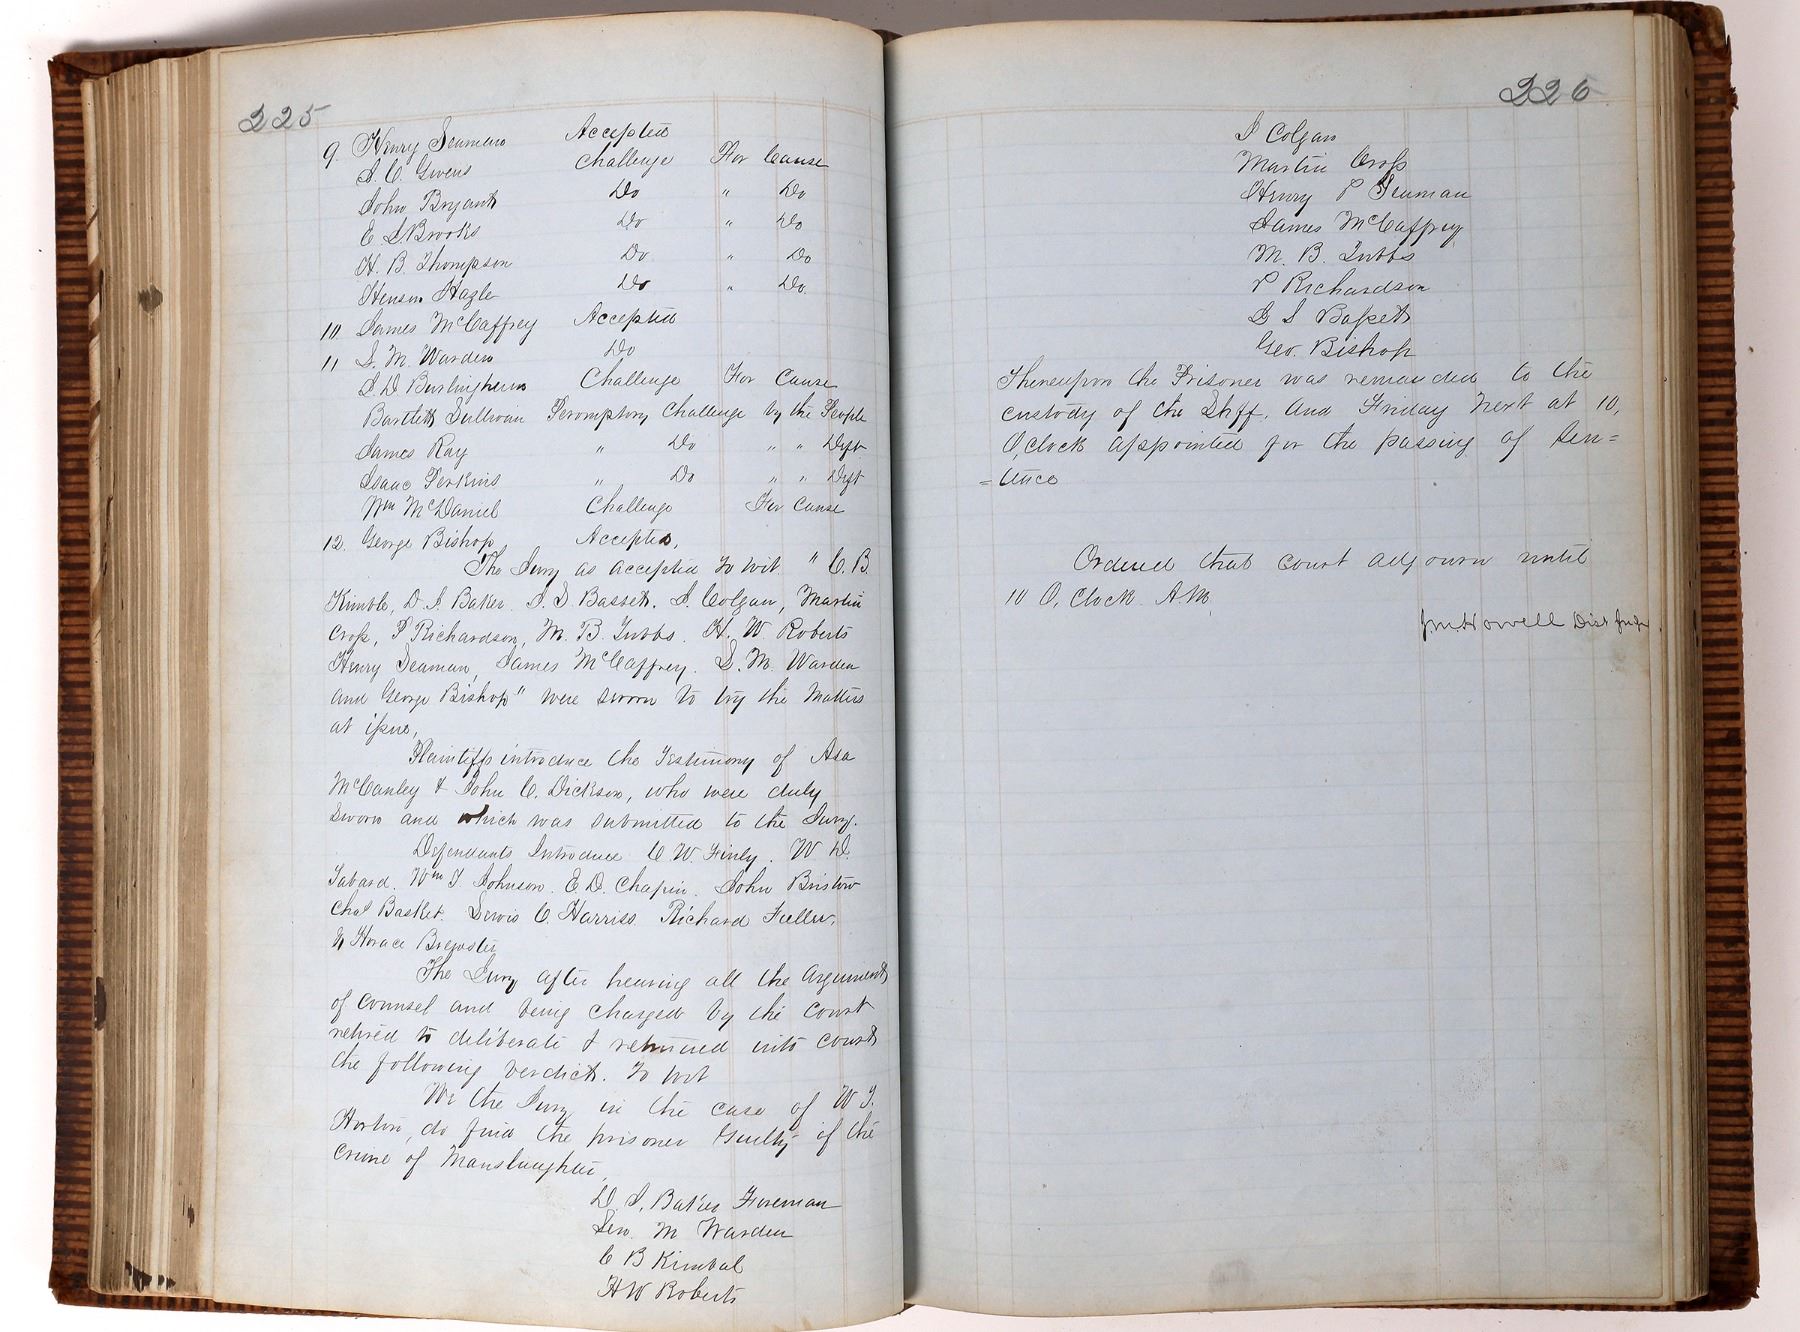 225
9. Henry Seaman Accepted
S. C. Givens Challenge For Cause
John Bryant Do " Do
E. S. Brooks Do " Do
H. B. Thompson Do " Do
Henson Hazle Do " Do
10 James McCaffrey Accepted
11 S. M. Warden Do
S D Burlingham Challenge For Cause
Bartlett Sullivan Peromptory Challenge by the People
James Ray " Do " " Deft
Isaac Perkins " Do " " Deft
Wm McDaniel Challenge For Cause
12. George Bishop Accepted,
The Jury as accepted To wit " C. B.
Kimble, D. S. Baker. S. S. Basset. J. Colgan, Martin
Cross, P Richardson, M. B. Tubbs. H. W. Roberts
Henry Seaman, James McCaffrey. S. M. Warden
and George Bishop" were sworn to try the Matters
at issue,
Plaintiffs introduce the Testimony of Asa
McCanley & John C. Dickson, who were duly
sworn and which was submitted to the Jury.
Defendants Introduce C. W. Finly. W D.
Tabard. Wm T Johnson. E. D. Chapin. John Bristow
Chas Basket. Lewis C. Harriss Richard Fuller,
& Horace Brewster
The Jury after hearing all the arguments
of counsel and being charged by the Court
retired to deliberate & returned into Court
the following verdict. To wit
We the Jury in the case of W T.
Horton, do find the prisoner Guilty of the
crime of Manslaughter,
D. S. Baker Foreman
Lew. M Warden
C B Kimbal
H W Roberts
226
J Colgan
Martin Cross
Henry P Seaman
James McCaffrey
M. B. Tubbs
P Richardson
S S Basset
Geo. Bishop
Thereupon the Prisoner was remanded to the
custody of the Shff. And Friday next at 10,
O,clock appointed for the passing of Sen=
=tence
Ordered that court adjourn until
10 O, Clock A.M,
J.M. Howell Dist Judge.